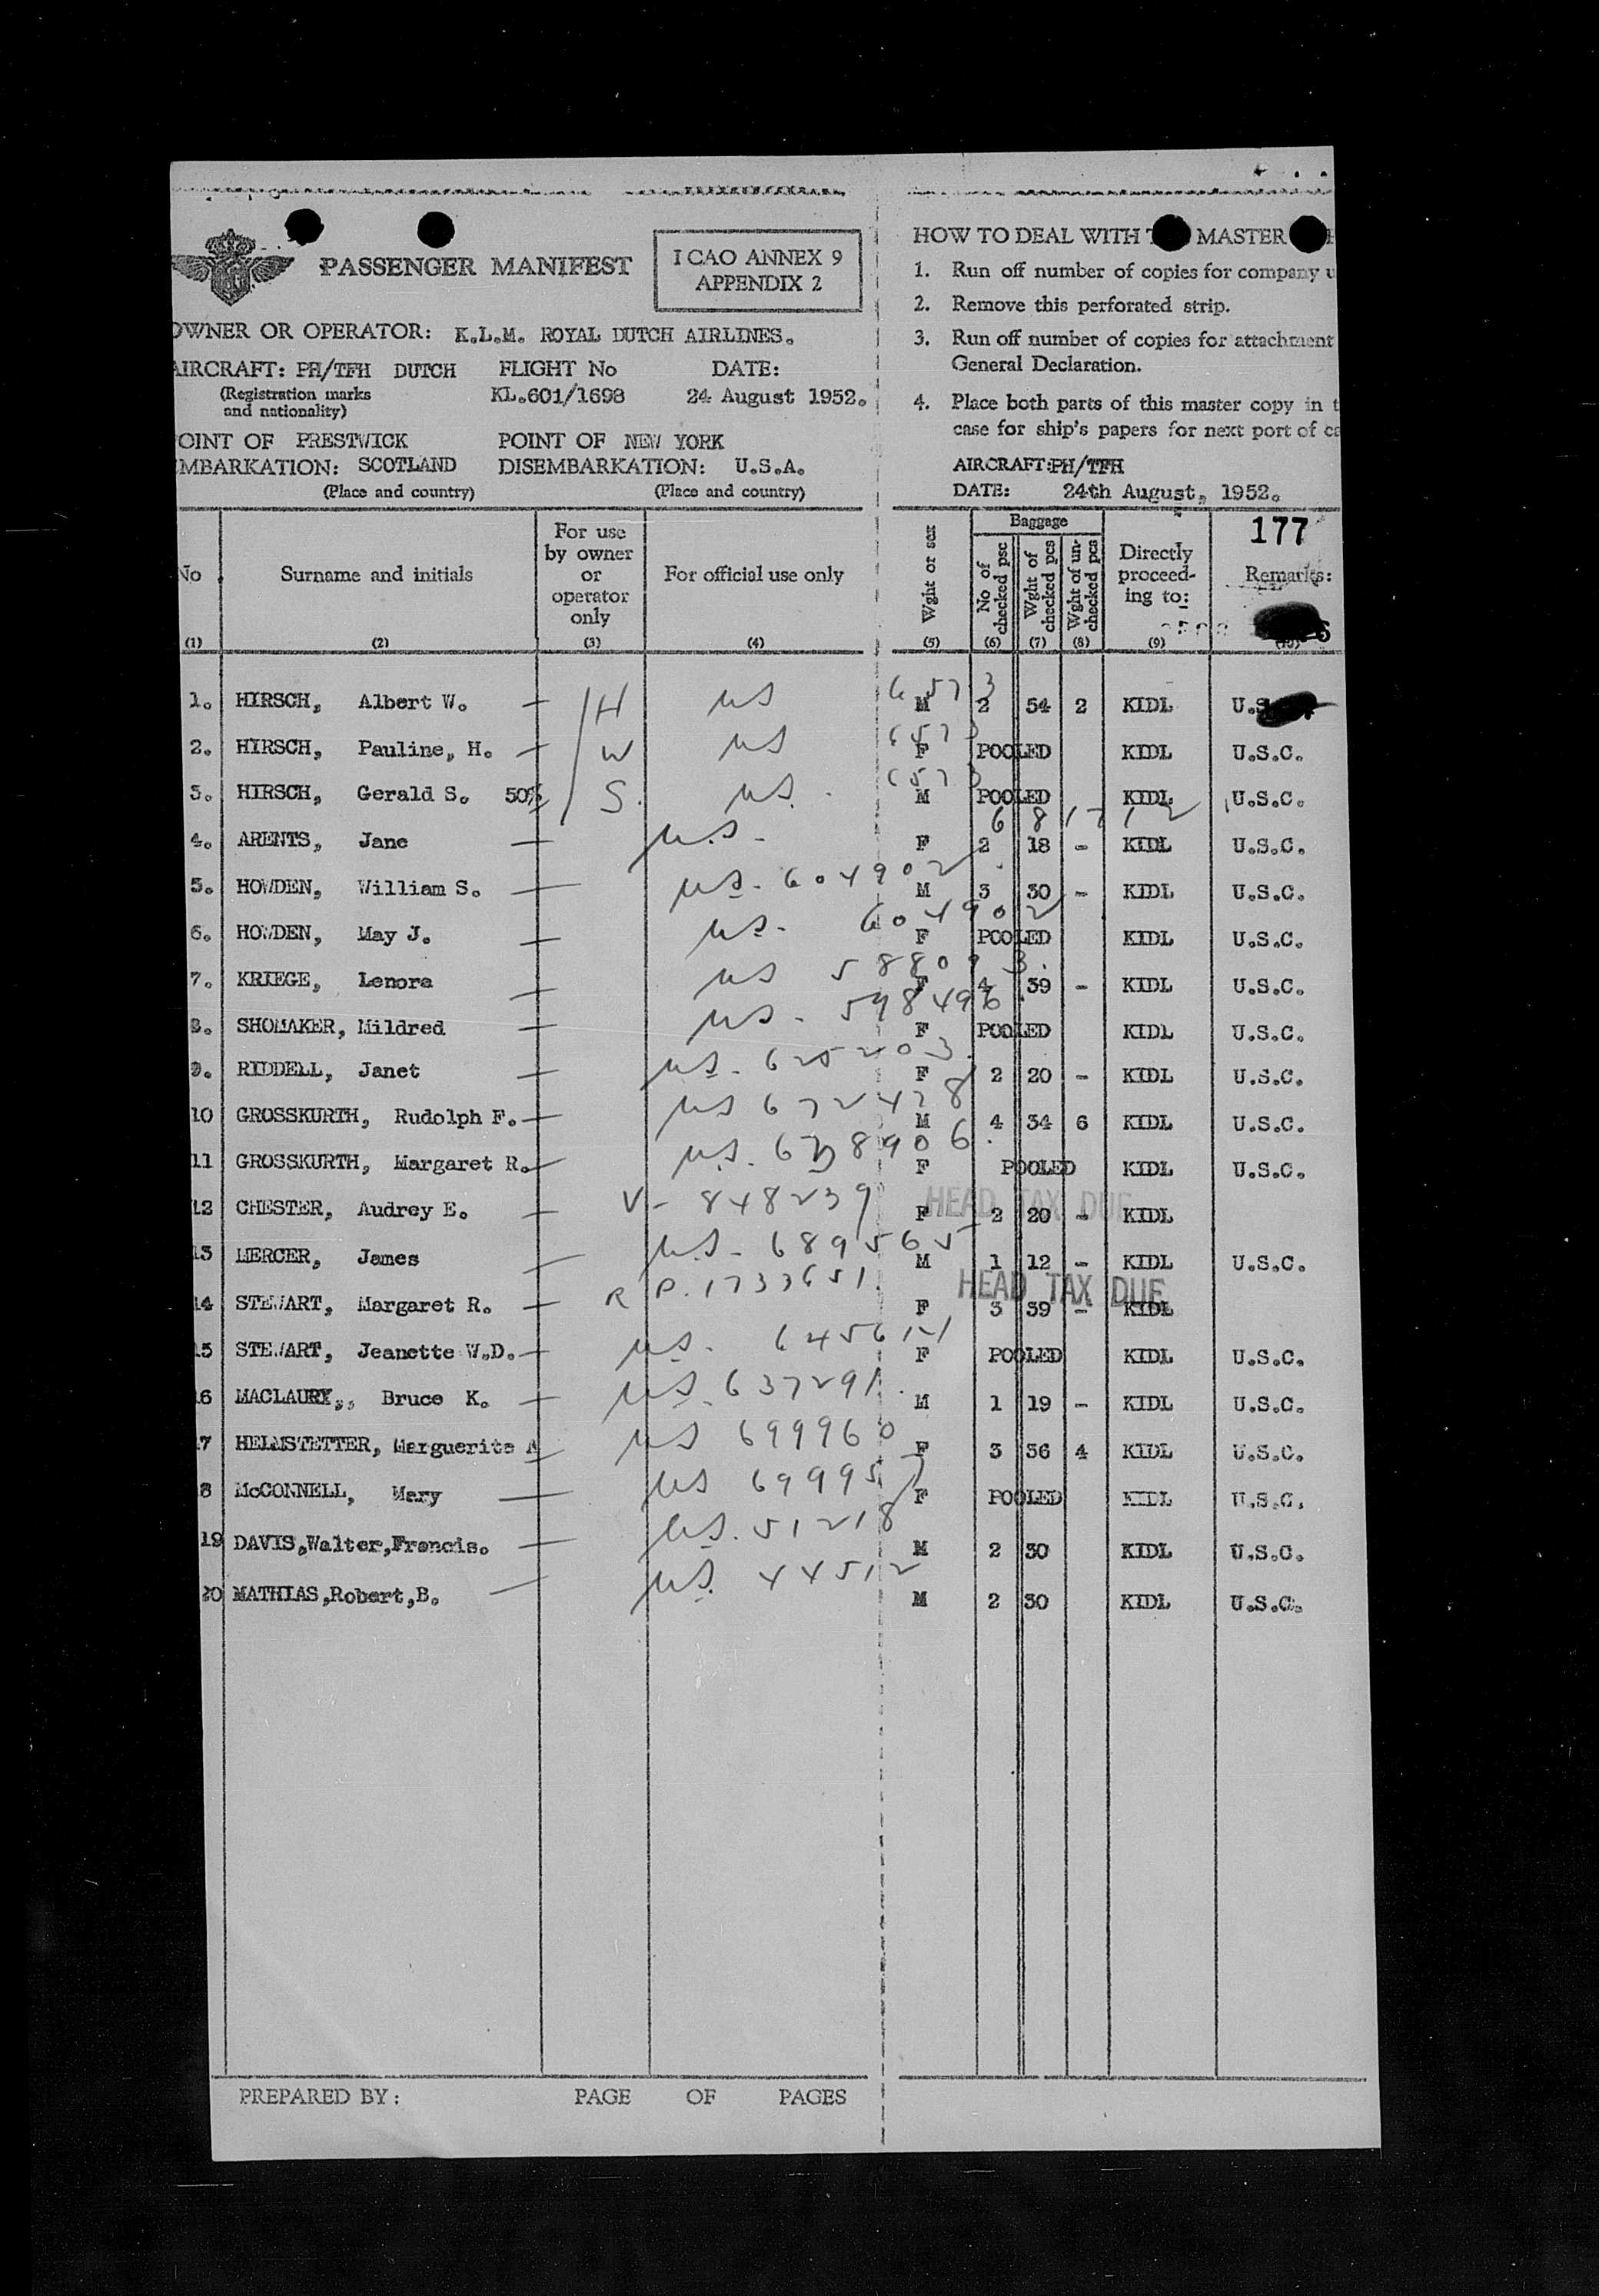 PASSENGER MANIFEST
I CAO ANNEX 9
APPENDIX 2
OWNER OR OPERATOR: K.L.M. ROYAL DUTCH AIRLINES.
AIRCRAFT: PH/TFH DUTCH FLIGHT No DATE:
(Registration marks and nationality) KL.601/1698 24 August 1952.
OINT OF PRESTWICK POINT OF NEW YORK
MBARKATION: SCOTLAND DISEMBARKATION: U.S.A.
(Place and country) (Place and country)
HOW TO DEAL WITH MASTER
1. Run off number of copies for company u
2. Remove this perforated strip.
3. Run off number of copies for attachment
General Declaration.
4. Place both parts of this master copy in t
case for ship's papers for next port of ca
AIRCRAFT:PH/TFH
DATE: 24th August, 1952.
177
No Surname and initials For use by owner or operator only For official use only Wght or sex Baggage No of checked psc Wght of checked pcs Wght of un-checked pcs Directly proceed-ing to: Remarks:
(1) (2) (3) (4) (5) (6) (7) (8) (9) (10)
1. HIRSCH, Albert W. — H US 6573 M 2 54 2 KIDL
2. HIRSCH, Pauline, H. — W US 6573 F POOLED KIDL U.S.C.
3. HIRSCH, Gerald S. 50% S. US. 6573 M POOLED KIDL U.S.C.
4. ARENTS, Jane — U.S. - 681712 F 2 18 - KIDL U.S.C.
5. HOWDEN, William S. — US. 604902 M 3 30 - KIDL U.S.C.
6. HOWDEN, May J. — US. 604902 F POOLED KIDL U.S.C.
7. KRIEGE, Lenora — US 588093. F 4 39 - KIDL U.S.C.
8. SHOMAKER, Mildred — US. 598496 F POOLED KIDL U.S.C.
9. RIDDELL, Janet — US. 625203. F 2 20 - KIDL U.S.C.
10 GROSSKURTH, Rudolph F. — US 672428 M 4 34 6 KIDL U.S.C.
11 GROSSKURTH, Margaret R. — U.S. F POOLED KIDL U.S.C.
12 CHESTER, Audrey E. — V- 848239 F 2 20 - KIDL
HEAD TAX DUE
13 MERCER, James — U.S. - 689565 M 1 12 - KIDL U.S.C.
14 STEWART, Margaret R. — R P. 1733651. F 3 39 - KIDL
HEAD TAX DUE
15 STEWART, Jeanette W.D. — US. F POOLED KIDL U.S.C.
16 MACLAURY,, Bruce K. — US. 637291. M 1 19 - KIDL U.S.C.
17 HELMSTETTER, Marguerite A US 699960 F 3 36 4 KIDL U.S.C.
8 McCONNELL, Mary — US 699957 F POOLED KIDL U.S.C.
19 DAVIS,Walter,Francis. — US. 51218 M 2 30 KIDL U.S.C.
20 MATHIAS,Robert,B. — US. 44512 M 2 30 KIDL U.S.C.
PREPARED BY: PAGE OF PAGES